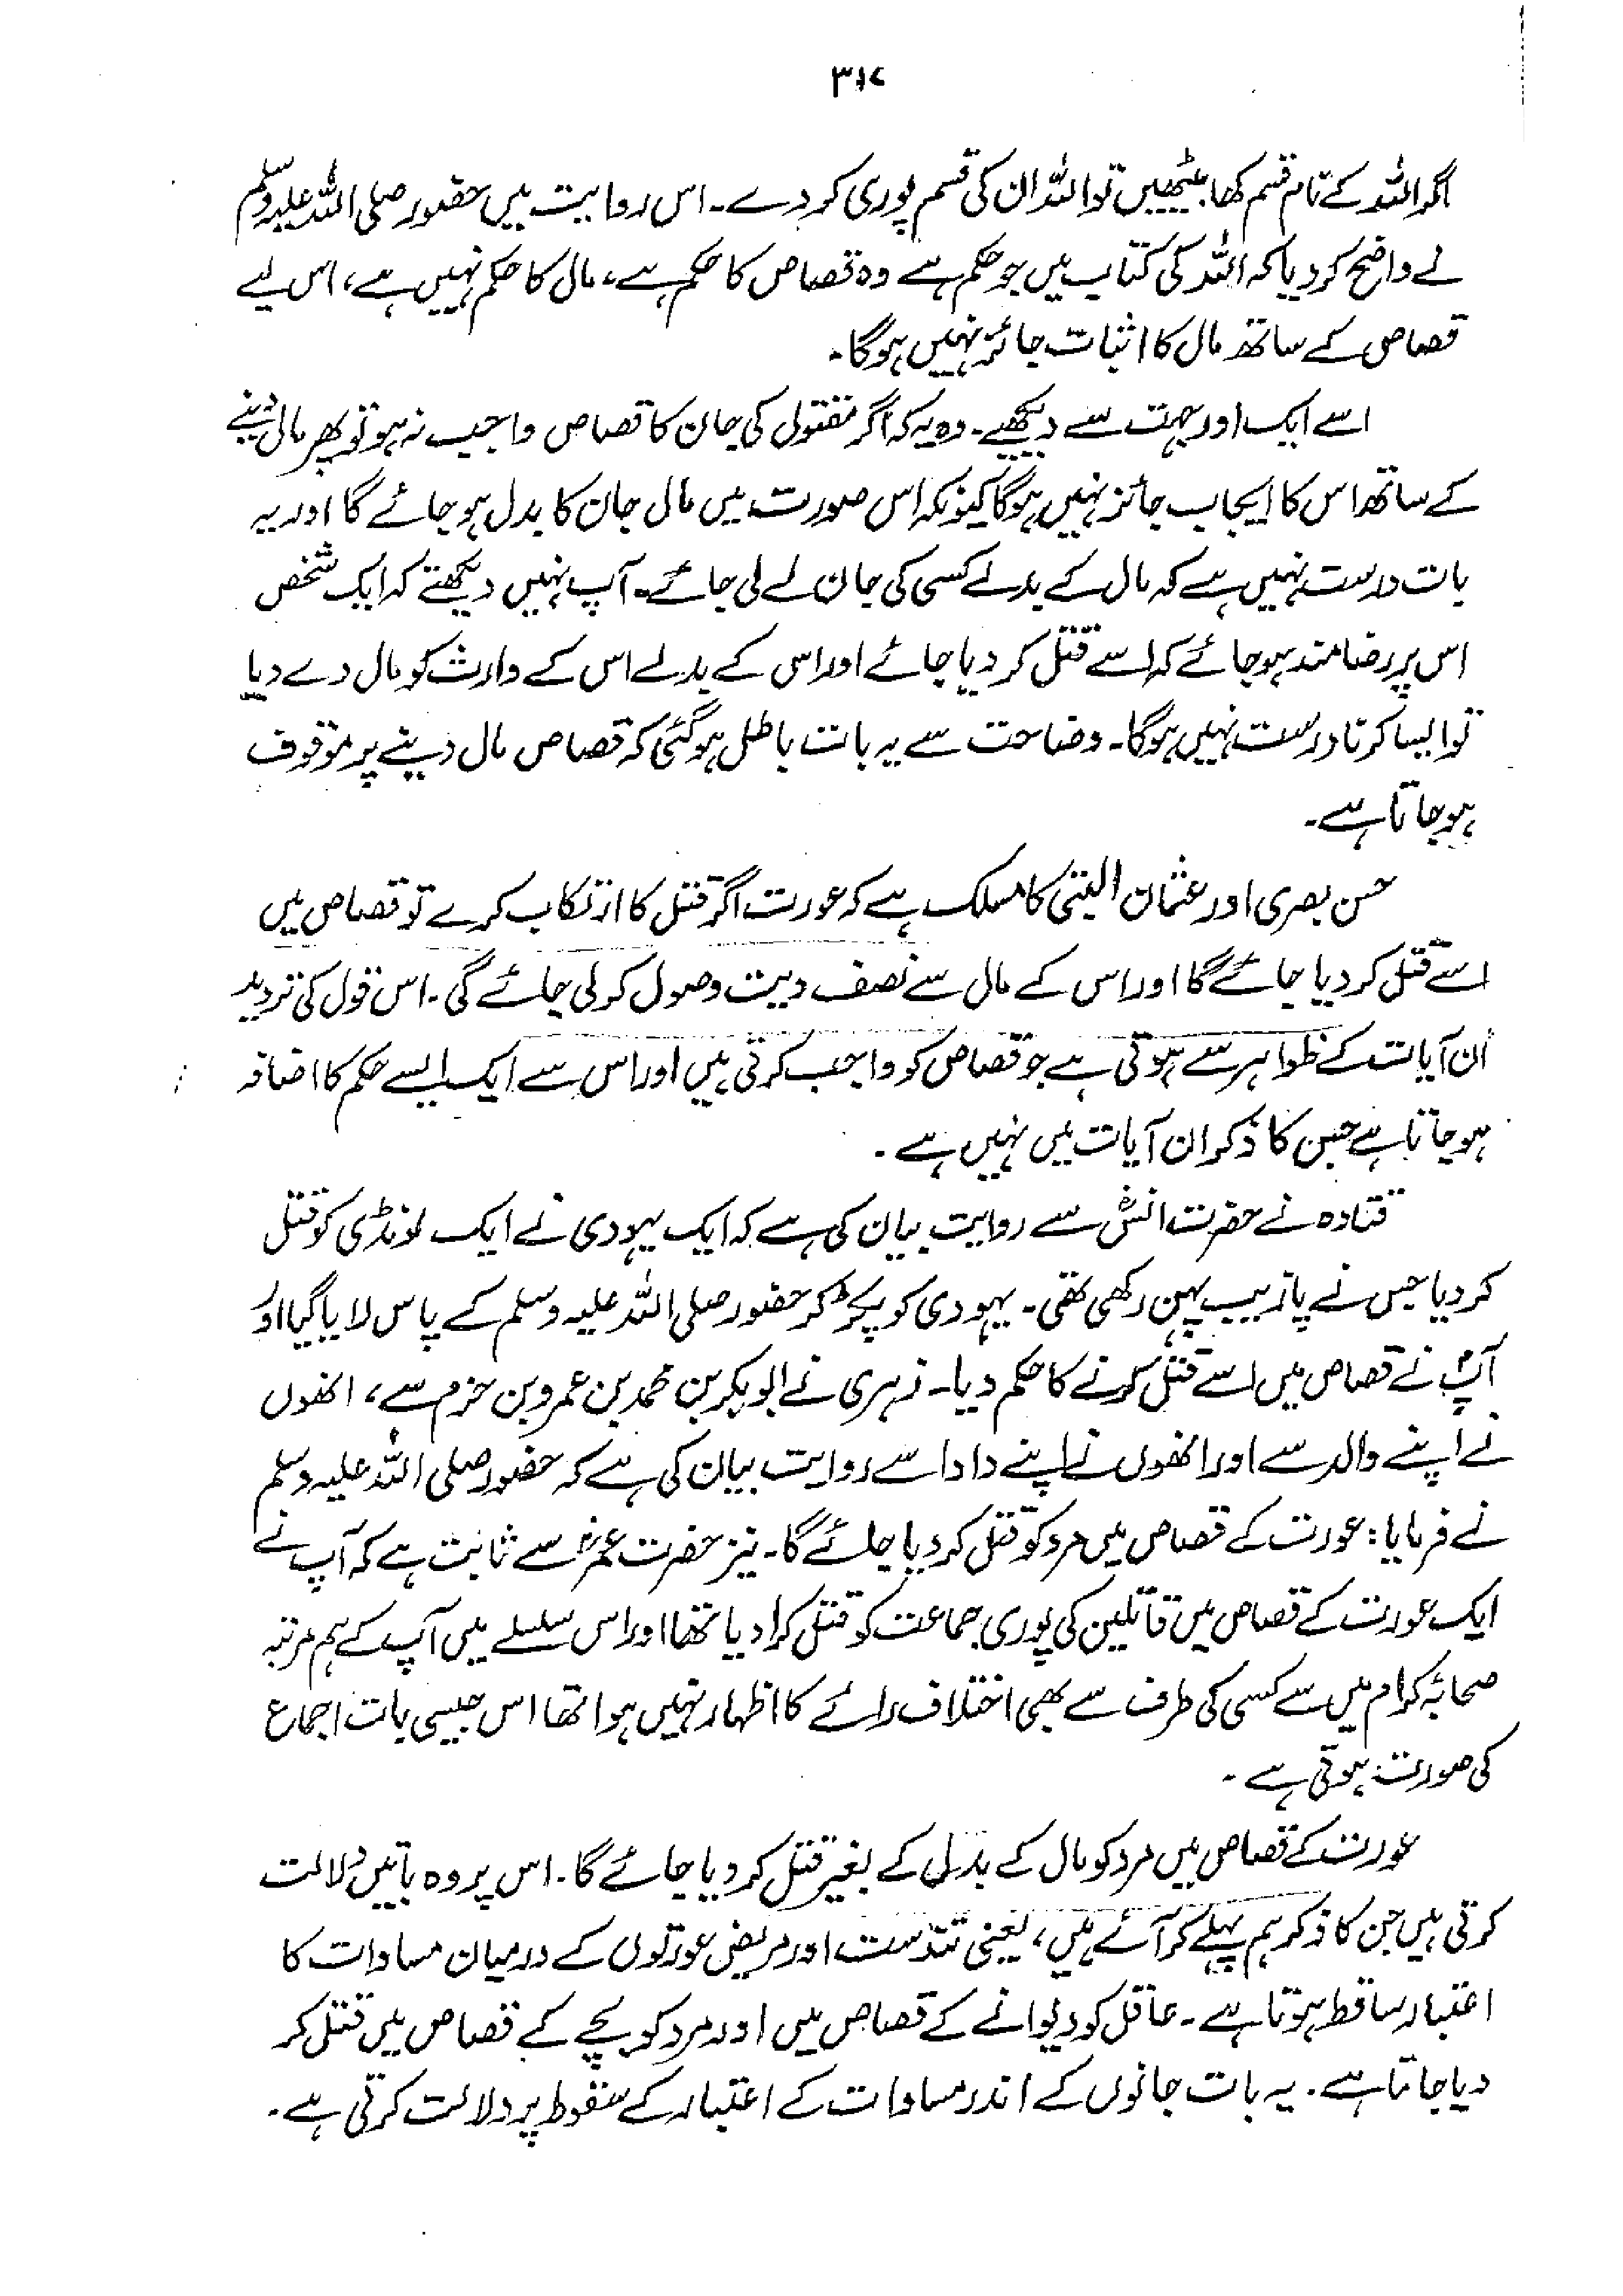 ۳۱۷
اگر اللہ کے نام قسم کھا بیٹھیں تو اللہ ان کی قسم پوری کر دے۔ اس روایت میں حضور صلی اللہ علیہ وسلم
نے واضح کر دیا کہ اللہ کی کتاب میں جو حکم ہے وہ قصاص کا حکم ہے، مال کا حکم نہیں ہے، اس لیے
قصاص کے ساتھ مال کا اثبات جائز نہیں ہوگا۔
اسے ایک اور جہت سے دیکھیے۔ وہ یہ کہ اگر مقتول کی جان کا قصاص واجب نہ ہو تو پھر مال دینے
کے ساتھ اس کا ایجاب جائز نہیں ہوگا کیونکہ اس صورت میں مال جان کا بدل ہو جائے گا اور یہ
بات درست نہیں ہے کہ مال کے بدلے کسی کی جان لے لی جائے۔ آپ نہیں دیکھتے کہ ایک شخص
اس پر رضا مند ہو جائے کہ اسے قتل کر دیا جائے اور اس کے بدلے اس کے وارث کو مال دے دیا
تو ایسا کرنا درست نہیں ہوگا۔ وضاحت سے یہ بات باطل ہو گئی کہ قصاص مال دینے پر موقوف
ہو جاتا ہے۔
حسن بصری اور عثمان البتی کا مسلک ہے کہ عورت اگر قتل کا ارتکاب کرے تو قصاص میں
اسے قتل کر دیا جائے گا اور اس کے مال سے نصف دیت وصول کر لی جائے گی۔ اس قول کی تردید
ان آیات کے ظواہر سے ہوتی ہے جو قصاص کو واجب کرتی ہیں اور اس سے ایک ایسے حکم کا اضافہ
ہو جاتا ہے جس کا ذکر ان آیات میں نہیں ہے۔
قتادہ نے حضرت انسؓ سے روایت بیان کی ہے کہ ایک یہودی نے ایک لونڈی کو قتل
کر دیا جس نے پازیب پہن رکھی تھی۔ یہودی کو پکڑ کر حضور صلی اللہ علیہ وسلم کے پاس لایا گیا اور
آپؐ نے قصاص میں اسے قتل کرنے کا حکم دیا۔ زہری نے ابوبکر بن محمد بن عمرو بن حزم سے، انھوں
نے اپنے والد سے اور انھوں نے اپنے دادا سے روایت بیان کی ہے کہ حضور صلی اللہ علیہ وسلم
نے فرمایا: عورت کے قصاص میں مرد کو قتل کر دیا جائے گا۔ نیز حضرت عمرؓ سے ثابت ہے کہ آپ نے
ایک عورت کے قصاص میں قاتلین کی پوری جماعت کو قتل کرا دیا تھا اور اس سلسلے میں آپ کے ہم مرتبہ
صحابہ کرام میں سے کسی کی طرف سے بھی اختلاف رائے کا اظہار نہیں ہوا تھا اس جیسی بات اجماع
کی صورت ہوتی ہے۔
عورت کے قصاص میں مرد کو مال کے بدل کے بغیر قتل کر دیا جائے گا۔ اس پر وہ باتیں دلالت
کرتی ہیں جن کا ذکر ہم پہلے کر آئے ہیں، یعنی تندرست اور مریض عورتوں کے درمیان مساوات کا
اعتبار ساقط ہوتا ہے۔ عاقل کو دیوانے کے قصاص میں اور مرد کو بچے کے قصاص میں قتل کر
دیا جاتا ہے۔ یہ بات جانوں کے اندر مساوات کے اعتبار کے سقوط پر دلالت کرتی ہے۔